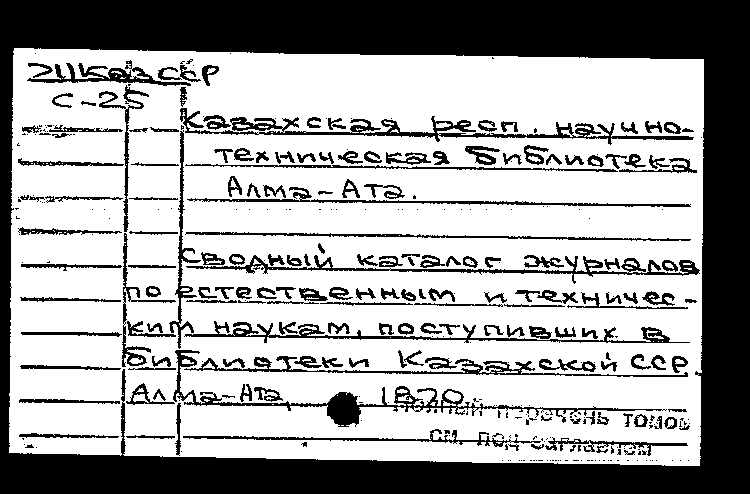 2Ш Каз ССР
С-25
Казахская респ. научно-
техническая библиотека
Алма-Ата.
Сводный каталог журналов
по естественным и техничес-
ким наукам, поступивших в
библиотеки Казахской ССР
Алма-Ата, 1970
Полный перечень томов
см. под заглавием